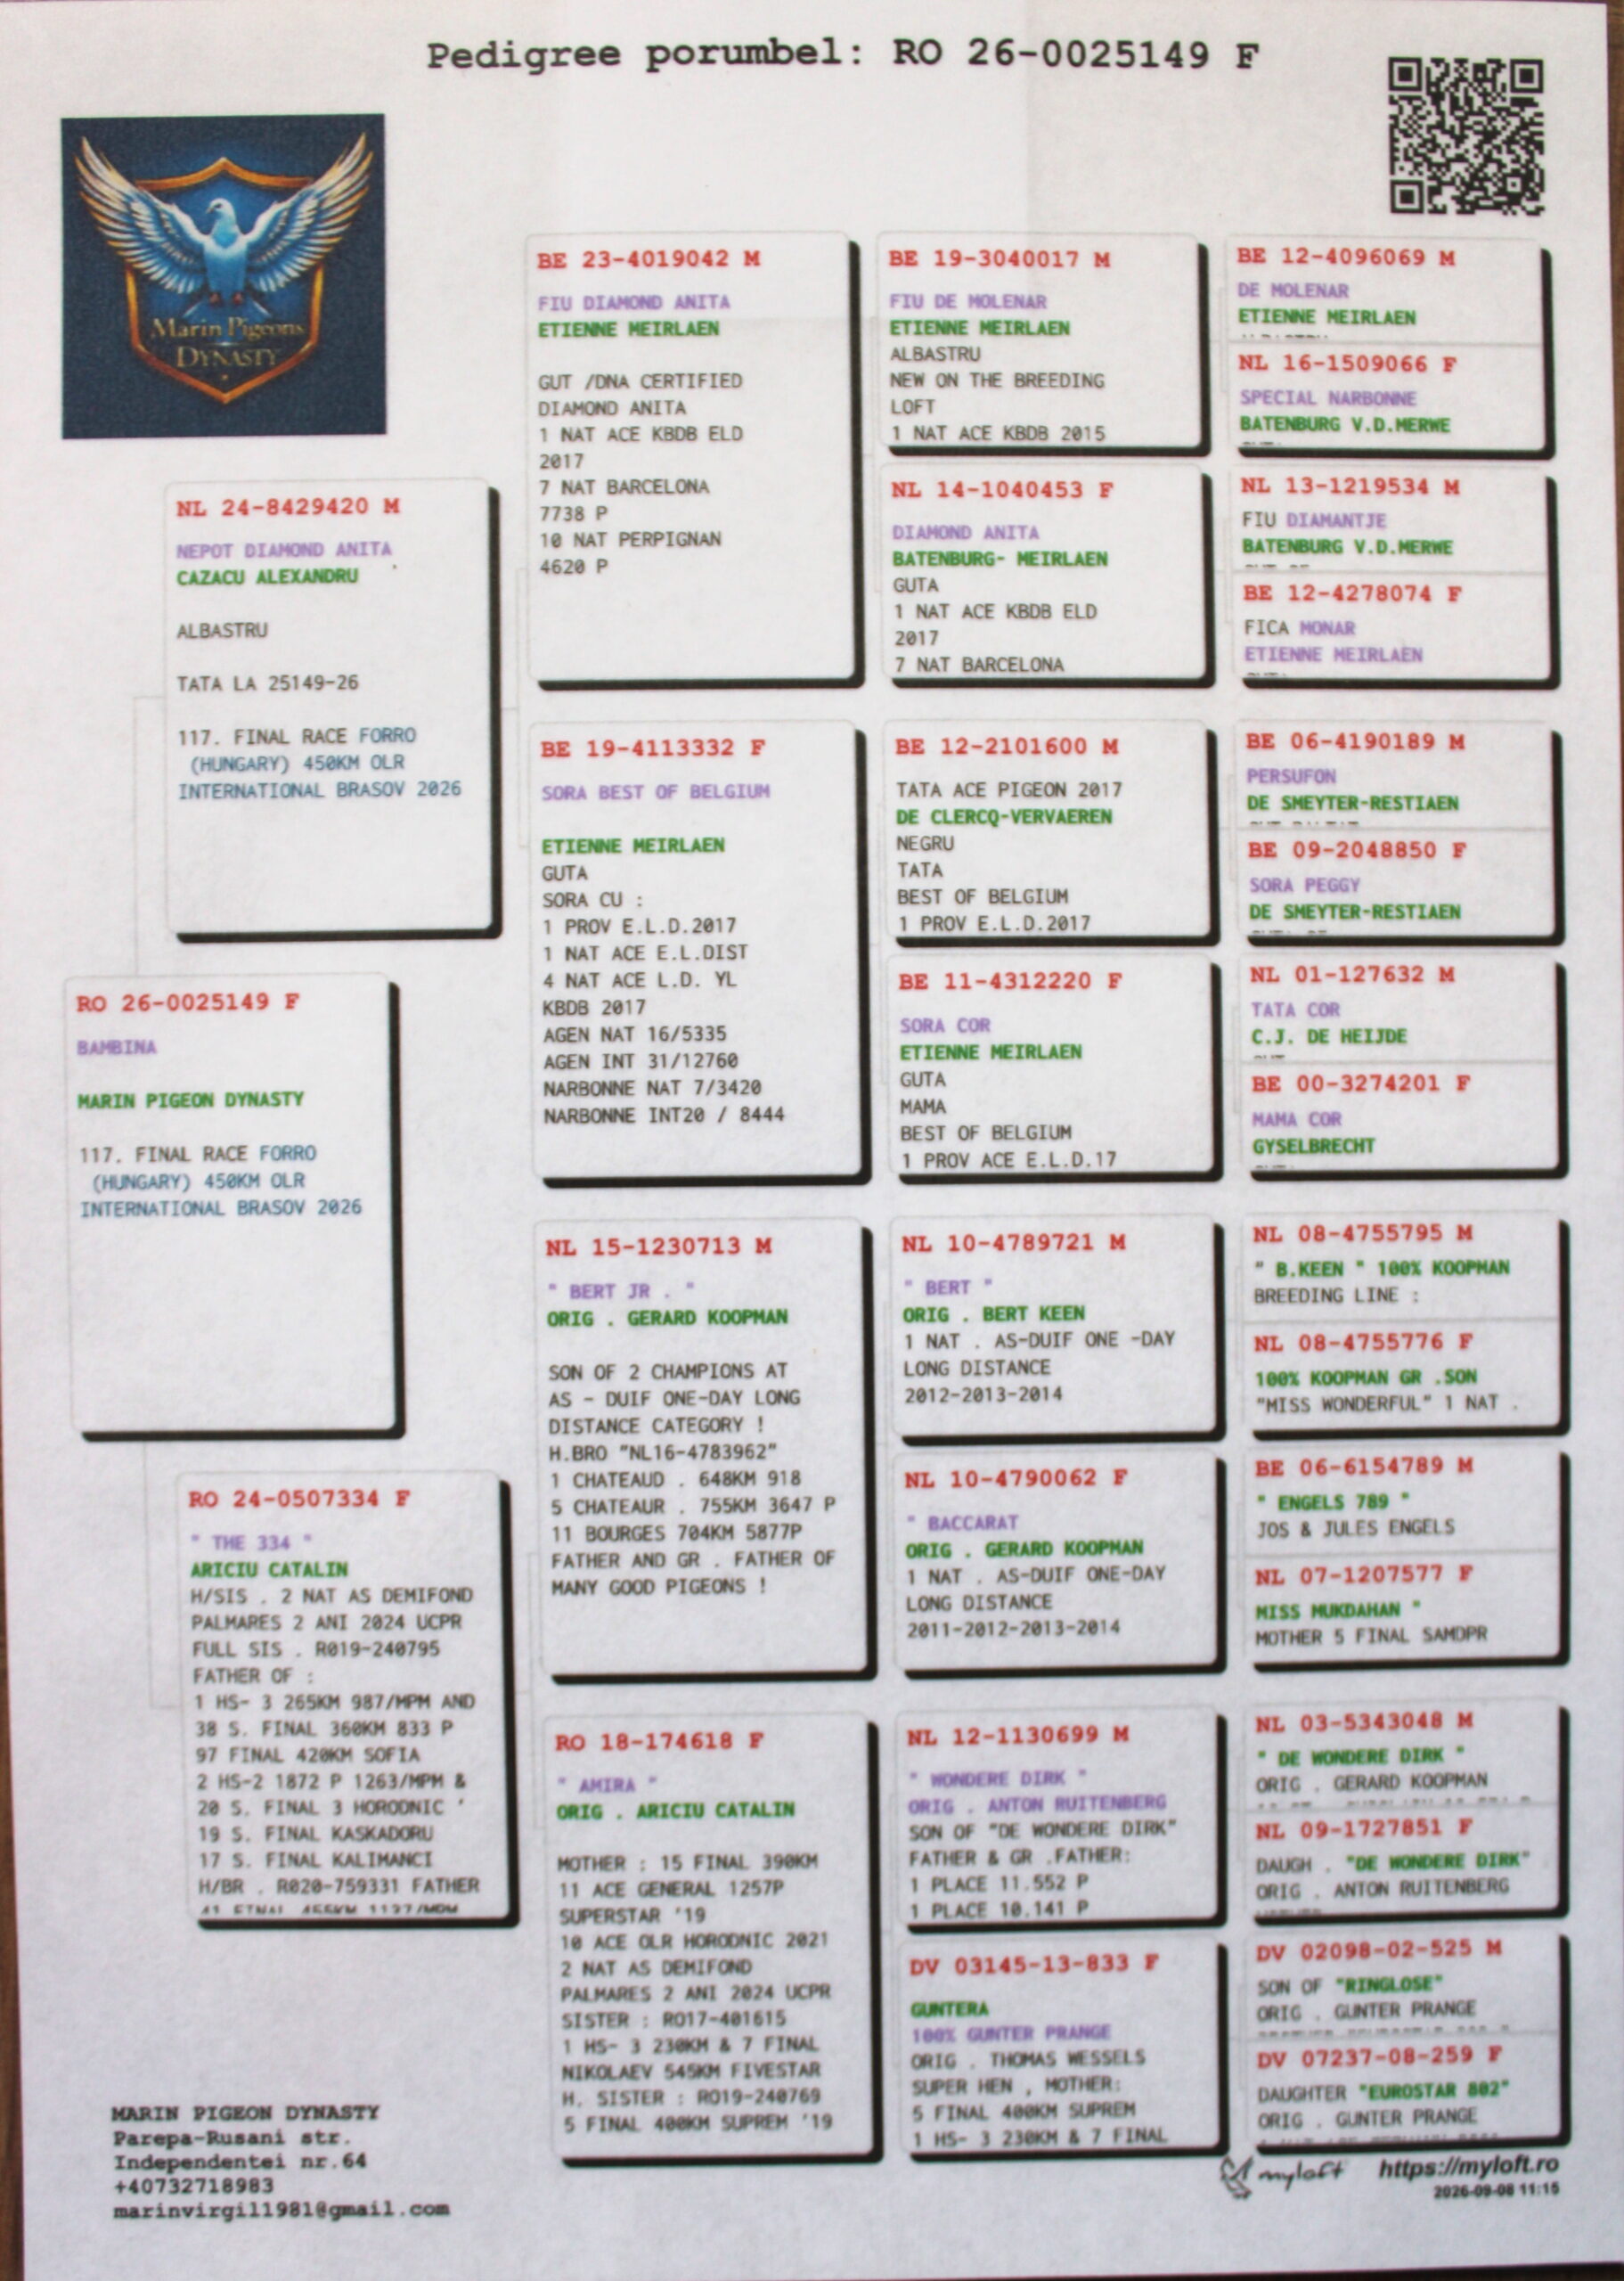 Pedigree porumbel: RO 26-0025149 F
Marin Pigeons
DYNASTY
RO 26-0025149 F
BAMBINA
MARIN PIGEON DYNASTY
117. FINAL RACE FORRO
(HUNGARY) 450KM OLR
INTERNATIONAL BRASOV 2026
NL 24-8429420 M
NEPOT DIAMOND ANITA
CAZACU ALEXANDRU
ALBASTRU
TATA LA 25149-26
117. FINAL RACE FORRO
(HUNGARY) 450KM OLR
INTERNATIONAL BRASOV 2026
RO 24-0507334 F
" THE 334 "
ARICIU CATALIN
H/SIS . 2 NAT AS DEMIFOND
PALMARES 2 ANI 2024 UCPR
FULL SIS . RO19-240795
FATHER OF :
1 HS- 3 265KM 987/MPM AND
38 S. FINAL 360KM 833 P
97 FINAL 420KM SOFIA
2 HS-2 1872 P 1263/MPM &
20 S. FINAL 3 HORODNIC '
19 S. FINAL KASKADORU
17 S. FINAL KALIMANCI
H/BR . RO20-759331 FATHER
41 FINAL 455KM 1127/MPM
BE 23-4019042 M
FIU DIAMOND ANITA
ETIENNE MEIRLAEN
GUT /DNA CERTIFIED
DIAMOND ANITA
1 NAT ACE KBDB ELD
2017
7 NAT BARCELONA
7738 P
10 NAT PERPIGNAN
4620 P
BE 19-4113332 F
SORA BEST OF BELGIUM
ETIENNE MEIRLAEN
GUTA
SORA CU :
1 PROV E.L.D.2017
1 NAT ACE E.L.DIST
4 NAT ACE L.D. YL
KBDB 2017
AGEN NAT 16/5335
AGEN INT 31/12760
NARBONNE NAT 7/3420
NARBONNE INT20 / 8444
NL 15-1230713 M
" BERT JR . "
ORIG . GERARD KOOPMAN
SON OF 2 CHAMPIONS AT
AS - DUIF ONE-DAY LONG
DISTANCE CATEGORY !
H.BRO "NL16-4783962"
1 CHATEAUD . 648KM 918
5 CHATEAUR . 755KM 3647 P
11 BOURGES 704KM 5877P
FATHER AND GR . FATHER OF
MANY GOOD PIGEONS !
RO 18-174618 F
" AMIRA "
ORIG . ARICIU CATALIN
MOTHER : 15 FINAL 390KM
11 ACE GENERAL 1257P
SUPERSTAR '19
10 ACE OLR HORODNIC 2021
2 NAT AS DEMIFOND
PALMARES 2 ANI 2024 UCPR
SISTER : RO17-401615
1 HS- 3 230KM & 7 FINAL
NIKOLAEV 545KM FIVESTAR
H. SISTER : RO19-240769
5 FINAL 400KM SUPREM '19
BE 19-3040017 M
FIU DE MOLENAR
ETIENNE MEIRLAEN
ALBASTRU
NEW ON THE BREEDING
LOFT
1 NAT ACE KBDB 2015
NL 14-1040453 F
DIAMOND ANITA
BATENBURG- MEIRLAEN
GUTA
1 NAT ACE KBDB ELD
2017
7 NAT BARCELONA
BE 12-2101600 M
TATA ACE PIGEON 2017
DE CLERCQ-VERVAEREN
NEGRU
TATA
BEST OF BELGIUM
1 PROV E.L.D.2017
BE 11-4312220 F
SORA COR
ETIENNE MEIRLAEN
GUTA
MAMA
BEST OF BELGIUM
1 PROV ACE E.L.D.17
NL 10-4789721 M
" BERT "
ORIG . BERT KEEN
1 NAT . AS-DUIF ONE -DAY
LONG DISTANCE
2012-2013-2014
NL 10-4790062 F
" BACCARAT
ORIG . GERARD KOOPMAN
1 NAT . AS-DUIF ONE-DAY
LONG DISTANCE
2011-2012-2013-2014
NL 12-1130699 M
" WONDERE DIRK "
ORIG . ANTON RUITENBERG
SON OF "DE WONDERE DIRK"
FATHER & GR .FATHER:
1 PLACE 11.552 P
1 PLACE 10.141 P
DV 03145-13-833 F
GUNTERA
100% GUNTER PRANGE
ORIG . THOMAS WESSELS
SUPER HEN , MOTHER:
5 FINAL 400KM SUPREM
1 HS- 3 230KM & 7 FINAL
BE 12-4096069 M
DE MOLENAR
ETIENNE MEIRLAEN
NL 16-1509066 F
SPECIAL NARBONNE
BATENBURG V.D.MERWE
NL 13-1219534 M
FIU DIAMANTJE
BATENBURG V.D.MERWE
BE 12-4278074 F
FICA MONAR
ETIENNE MEIRLAEN
BE 06-4190189 M
PERSUFON
DE SMEYTER-RESTIAEN
BE 09-2048850 F
SORA PEGGY
DE SMEYTER-RESTIAEN
NL 01-127632 M
TATA COR
C.J. DE HEIJDE
BE 00-3274201 F
MAMA COR
GYSELBRECHT
NL 08-4755795 M
" B.KEEN " 100% KOOPMAN
BREEDING LINE :
NL 08-4755776 F
100% KOOPMAN GR .SON
"MISS WONDERFUL" 1 NAT .
BE 06-6154789 M
" ENGELS 789 "
JOS & JULES ENGELS
NL 07-1207577 F
MISS MUKDAHAN "
MOTHER 5 FINAL SAMDPR
NL 03-5343048 M
" DE WONDERE DIRK "
ORIG . GERARD KOOPMAN
NL 09-1727851 F
DAUGH . "DE WONDERE DIRK"
ORIG . ANTON RUITENBERG
DV 02098-02-525 M
SON OF "RINGLOSE"
ORIG . GUNTER PRANGE
DV 07237-08-259 F
DAUGHTER "EUROSTAR 802"
ORIG . GUNTER PRANGE
MARIN PIGEON DYNASTY
Parepa-Rusani str.
Independentei nr.64
+40732718983
marinvirgil1981@gmail.com
myloft https://myloft.ro
2026-09-08 11:15